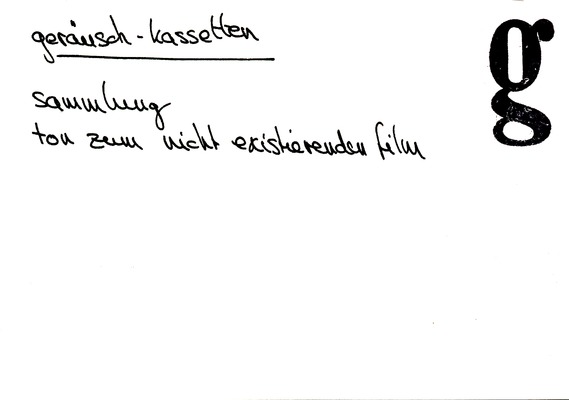 geräusch-kassetten
g
sammlung
ton zum nicht existierenden film